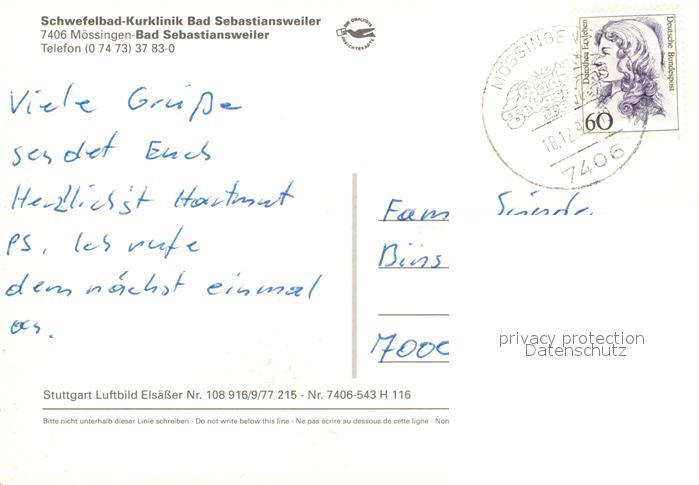 Schwefelbad-Kurklinik Bad Sebastiansweiler
7406 Mössingen-Bad Sebastiansweiler
Telefon (0 74 73) 37 83-0
MÖSSINGE
18.12.
7406
Dorothea Erxleben
Deutsche Bundespost
60
Viele Grüße
sendet Euch
Herzlichst Hartmut
PS. Ich rufe
demnächst einmal
an.
Fam
Büns
7000
privacy protection
Datenschutz
Stuttgart Luftbild Elsäßer Nr. 108 916/9/77 215 - Nr. 7406-543 H 116
Bitte nicht unterhalb dieser Linie schreiben - Do not write below this line - Ne pas écrire au dessous de cette ligne - Non